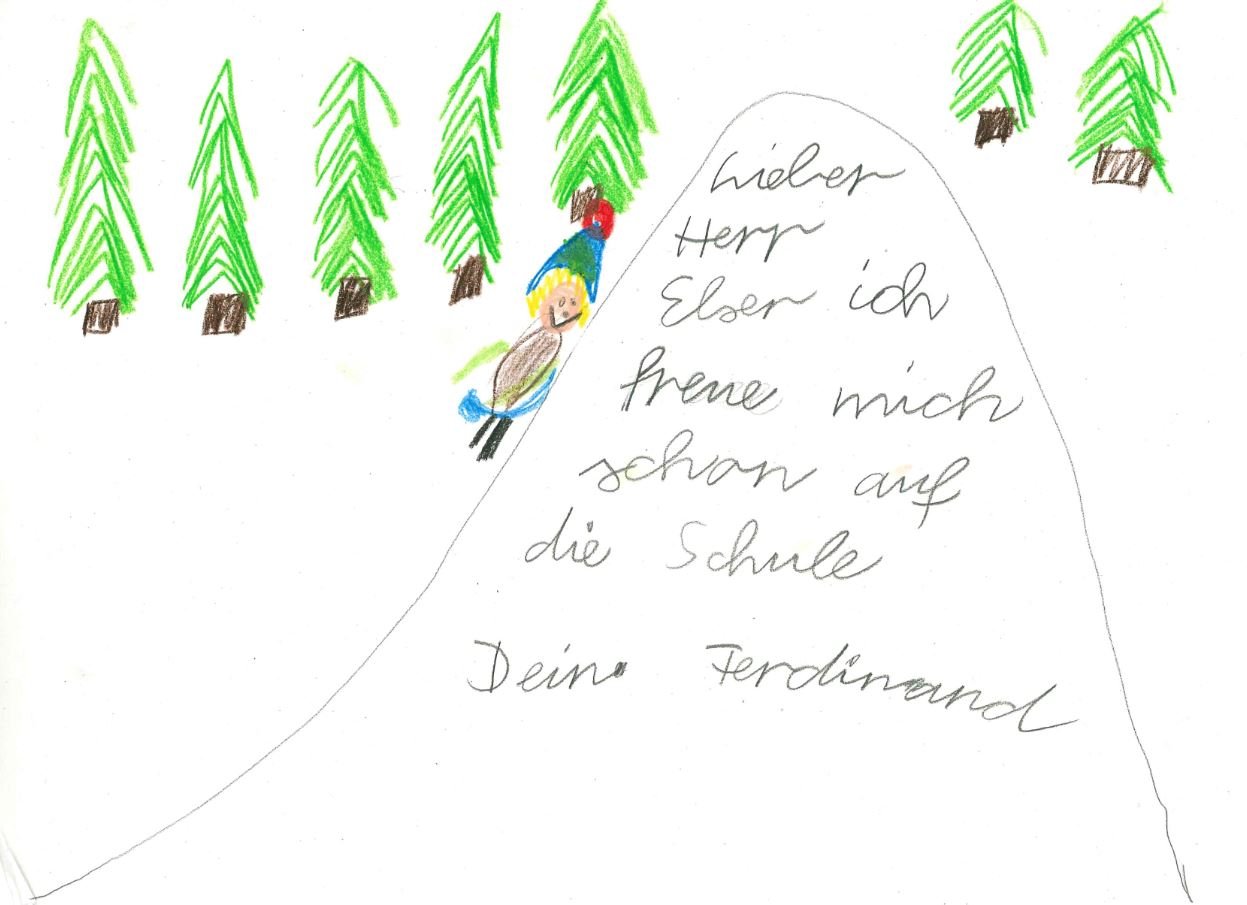 Lieber
Herr
Elser ich
freue mich
schon auf
die Schule
Dein Ferdinand